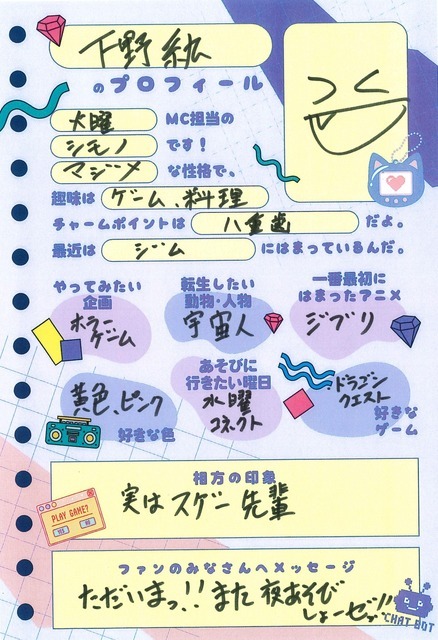 下野 紘
のプロフィール
火曜 MC担当の
シモノ です！
マジメ な性格で、
趣味は ゲーム、料理
チャームポイントは 八重歯 だよ。
最近は ジム にはまっているんだ。
やってみたい
企画
ホラー
ゲーム
転生したい
動物・人物
宇宙人
一番最初に
はまったアニメ
ジブリ
黄色、ピンク
好きな色
あそびに
行きたい曜日
水曜
コネクト
ドラゴン
クエスト
好きな
ゲーム
相方の印象
実は スゲー 先輩
PLAY GAME?
YES
NO
ファンのみなさんへメッセージ
ただいまっ!! また 夜あそび
しょーぜッ!!
CHAT BOT